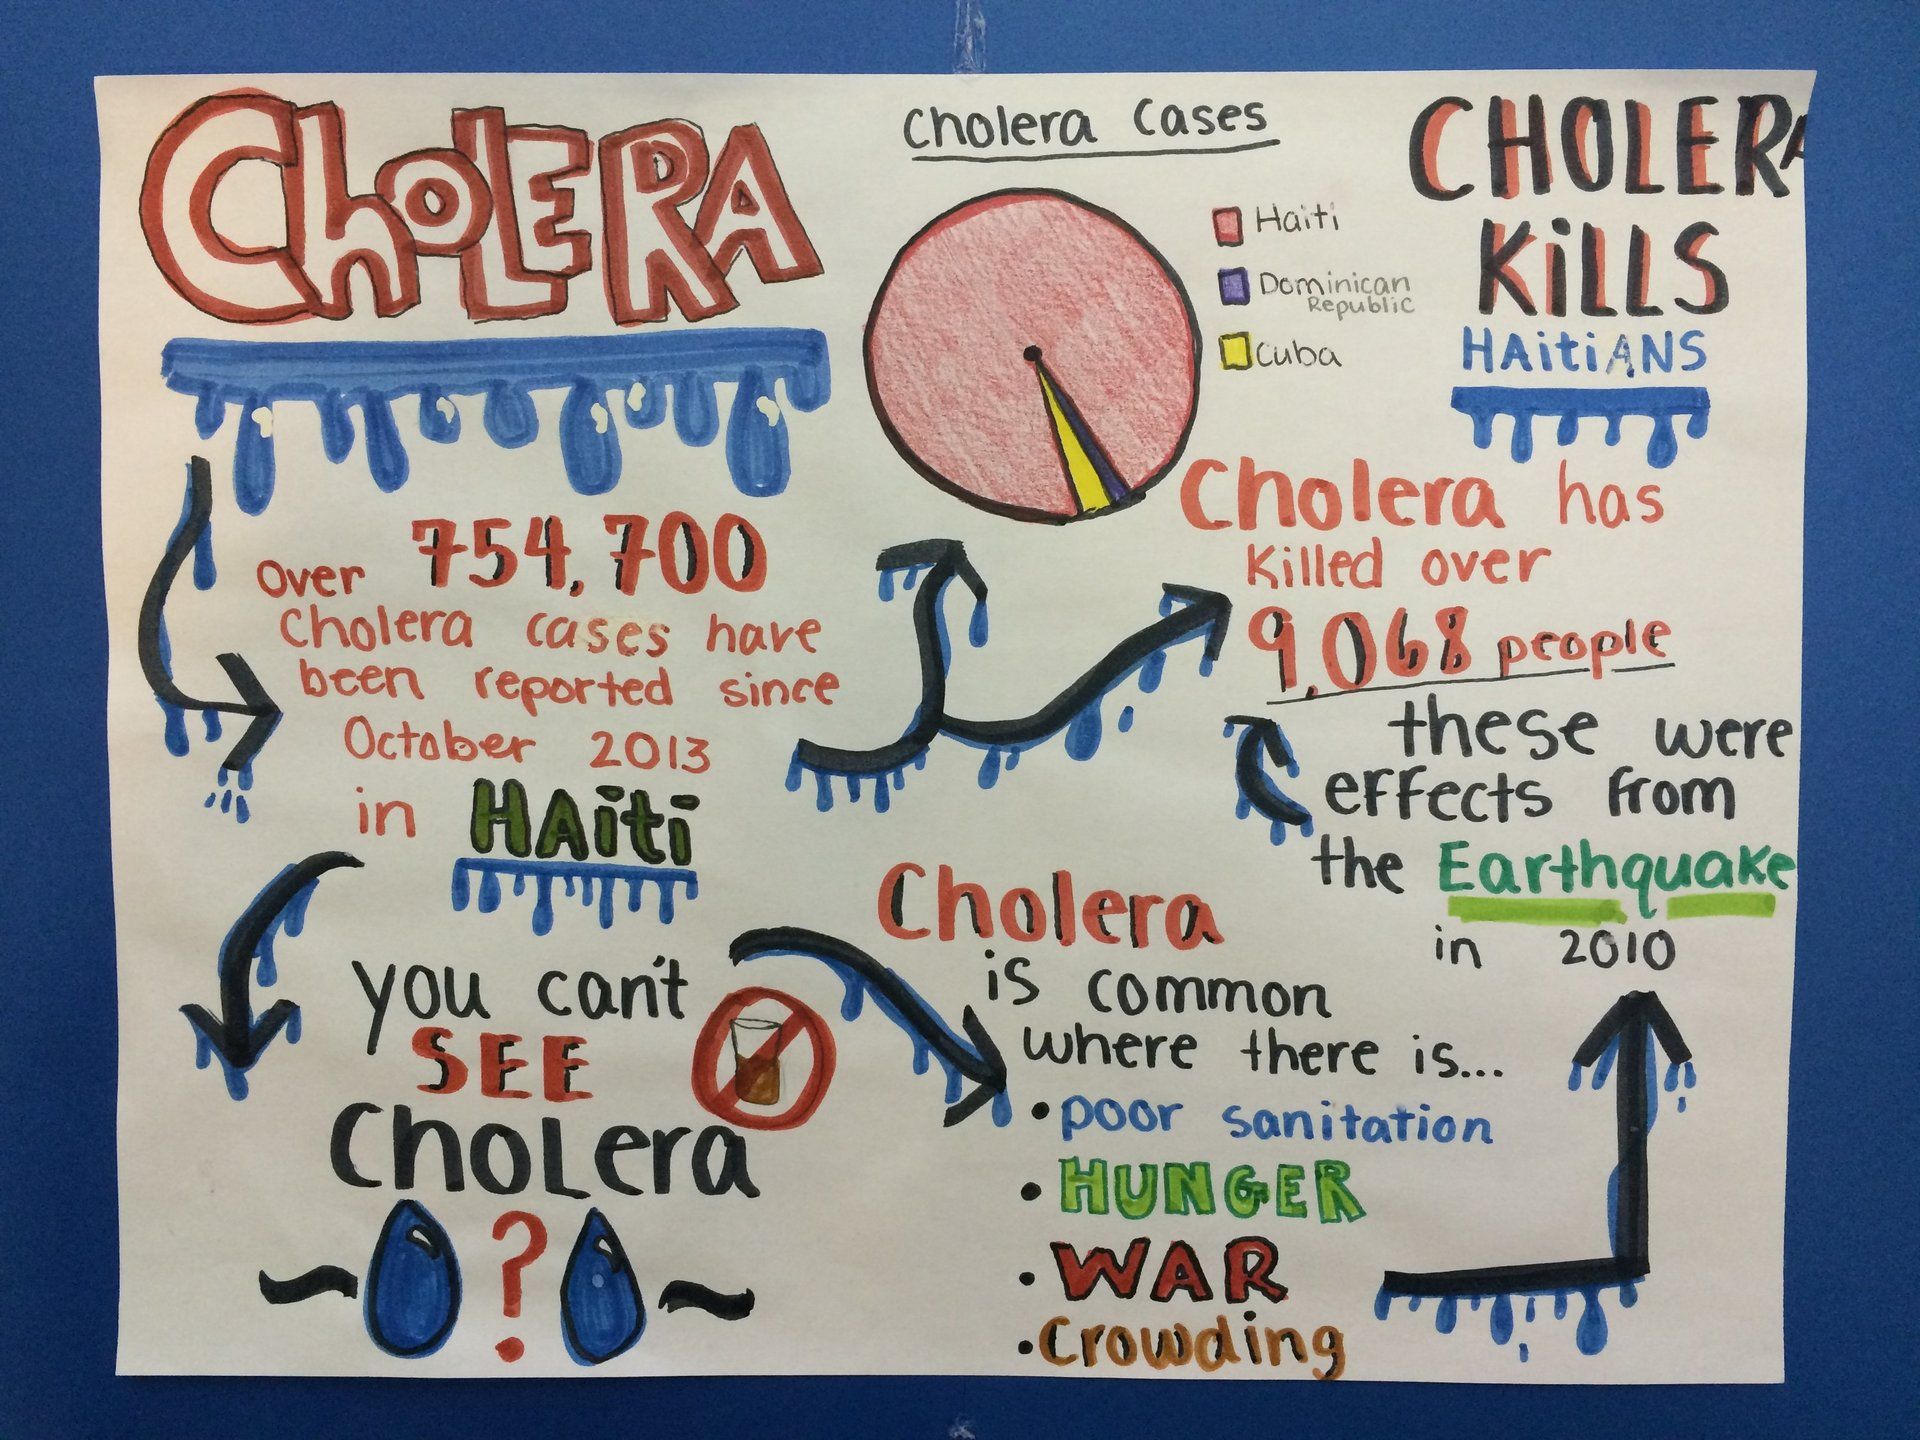 CHOLERA
Cholera Cases
Haiti
Dominican
Republic
Cuba
CHOLERA
KiLLS
HAitiANS
Over 754,700
Cholera cases have
been reported since
October 2013
in HAiti
Cholera has
Killed over
9,068 people
these were
effects from
the Earthquake
in 2010
you can't
SEE
Cholera
?
Cholera
is common
where there is...
• poor sanitation
• HUNGER
• WAR
• Crowding